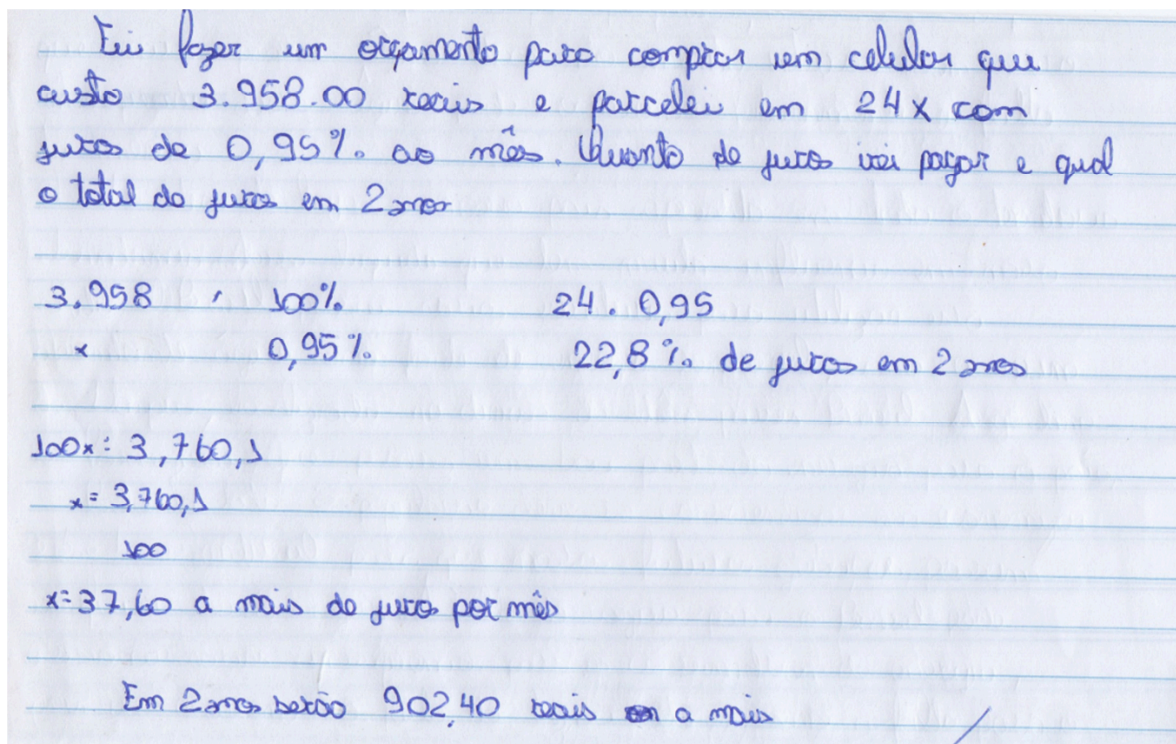 Fui fazer um orçamento para comprar um celular que
custa 3.958.00 reais e parcelei em 24x com
juros de 0,95% ao mês. Quanto de juros vai pagar e qual
o total de juros em 2 anos
3.958 , 100% 24 . 0,95
x 0,95% 22,8% de juros em 2 anos
100x = 3,760,1
x = 3,760,1
100
x = 37,60 a mais de juro por mês
Em 2 anos serão 902,40 reais a mais